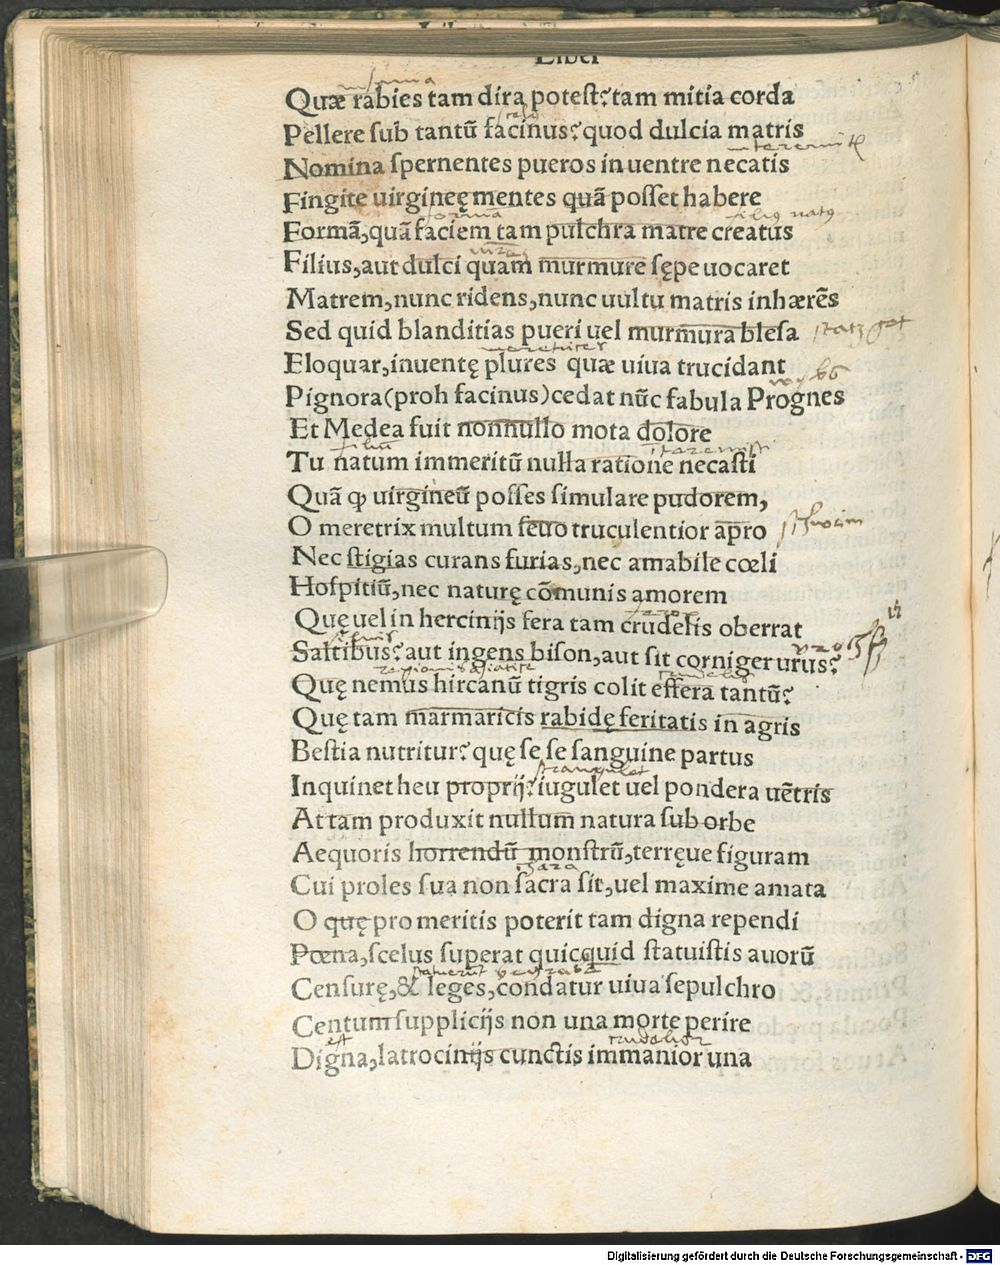 Liber
Quæ rabies tam dira potest? tam mitia corda
Pellere sub tantũ facinus? quod dulcia matris
Nomina spernentes pueros in uentre necatis
Fingite uirgineę mentes quã posset habere
Formã, quã faciem tam pulchra matre creatus
Filius, aut dulci quam murmure sępe uocaret
Matrem, nunc ridens, nunc uultu matris inhærẽs
Sed quid blanditias pueri uel murmura blesa
Eloquar, inuentę plures quæ uiua trucidant
Pignora (proh facinus) cedat nũc fabula Prognes
Et Medea fuit nonnullo mota dolore
filiũ
Tu natum immeritũ nulla ratione necasti
Quã ꝙ uirgineũ posses simulare pudorem,
O meretrix multum sęuo truculentior apro
Nec stigias curans furias, nec amabile cœli
Hospitiũ, nec naturę cõmunis amorem
Quę uel in hercinijs fera tam crudelis oberrat
Saltibus? aut ingens bison, aut sit corniger urus?
Quę nemus hircanũ tigris colit effera tantũ?
Quę tam marmaricis rabidę feritatis in agris
Bestia nutritur? quę se se sanguine partus
strangulet
Inquinet heu proprij? iugulet uel pondera uẽtris
At tam produxit nullum natura sub orbe
Aequoris horrendũ monstrũ, terręue figuram
Cui proles sua non sacra sit, uel maxime amata
O quę pro meritis poterit tam digna rependi
Pœna, scelus superat quicquid statuistis auorũ
Censurę, & leges, condatur uiua sepulchro
Centum supplicijs non una morte perire
est crudelior
Digna, latrocinijs cunctis immanior una
Digitalisierung gefördert durch die Deutsche Forschungsgemeinschaft - DFG